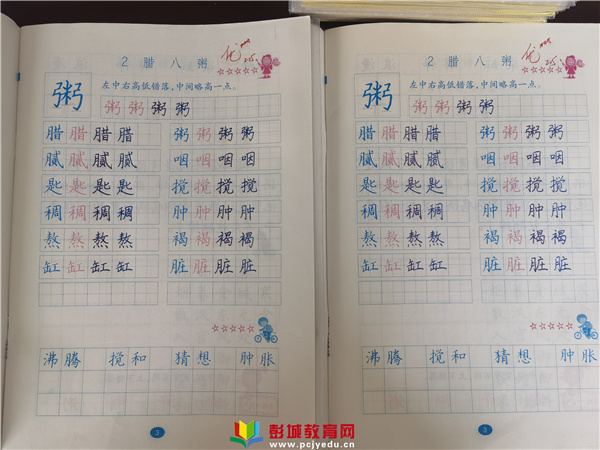 2 腊 八 粥
优
粥
左中右高低错落,中间略高一点。
粥 粥 粥 粥
腊 腊 腊 腊 粥 粥 粥 粥
腻 腻 腻 腻 咽 咽 咽 咽
匙 匙 匙 匙 搅 搅 搅 搅
稠 稠 稠 稠 肿 肿 肿 肿
熬 熬 熬 熬 褐 褐 褐 褐
缸 缸 缸 缸 脏 脏 脏 脏
沸 腾 搅 和 猜 想 肿 胀
3
2 腊 八 粥
优
粥
左中右高低错落,中间略高一点。
粥 粥 粥 粥
腊 腊 腊 腊 粥 粥 粥 粥
腻 腻 腻 腻 咽 咽 咽 咽
匙 匙 匙 匙 搅 搅 搅 搅
稠 稠 稠 稠 肿 肿 肿 肿
熬 熬 熬 熬 褐 褐 褐 褐
缸 缸 缸 缸 脏 脏 脏 脏
沸 腾 搅 和 猜 想 肿 胀
3
彭城教育网
www.pcjyedu.cn